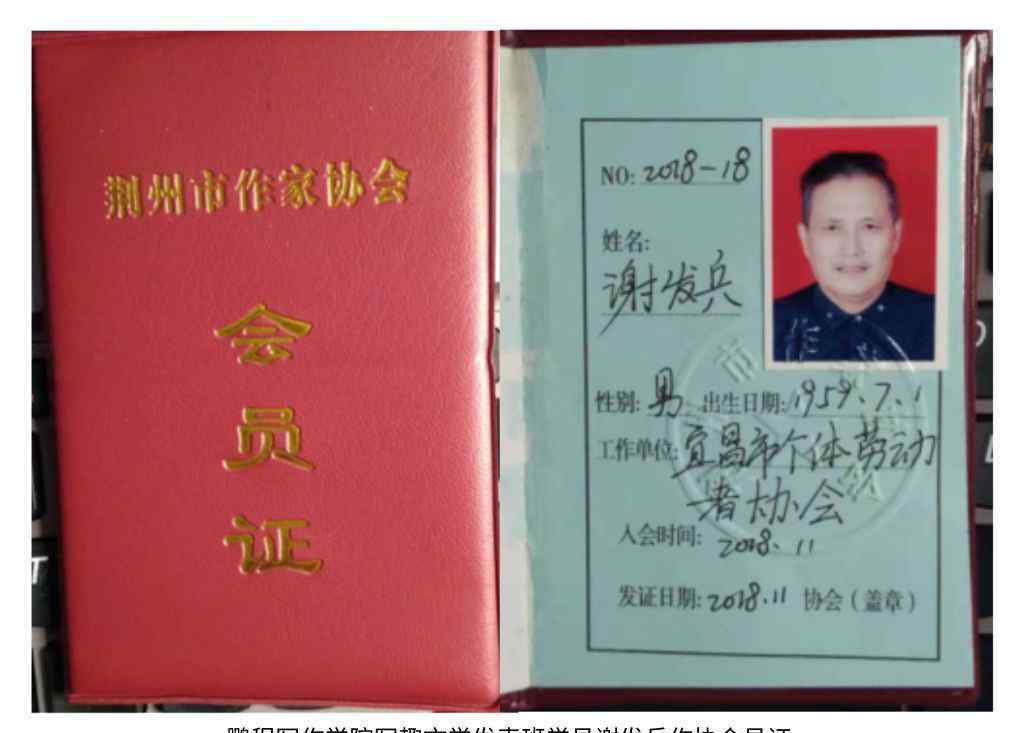 荆州市作家协会
会
员
证
NO: 2018-18
姓名:
谢发兵
性别: 男 出生日期: 1959.7.1
工作单位: 宜昌市个体劳动
者协会
入会时间: 2018.11
发证日期: 2018.11 协会（盖章）